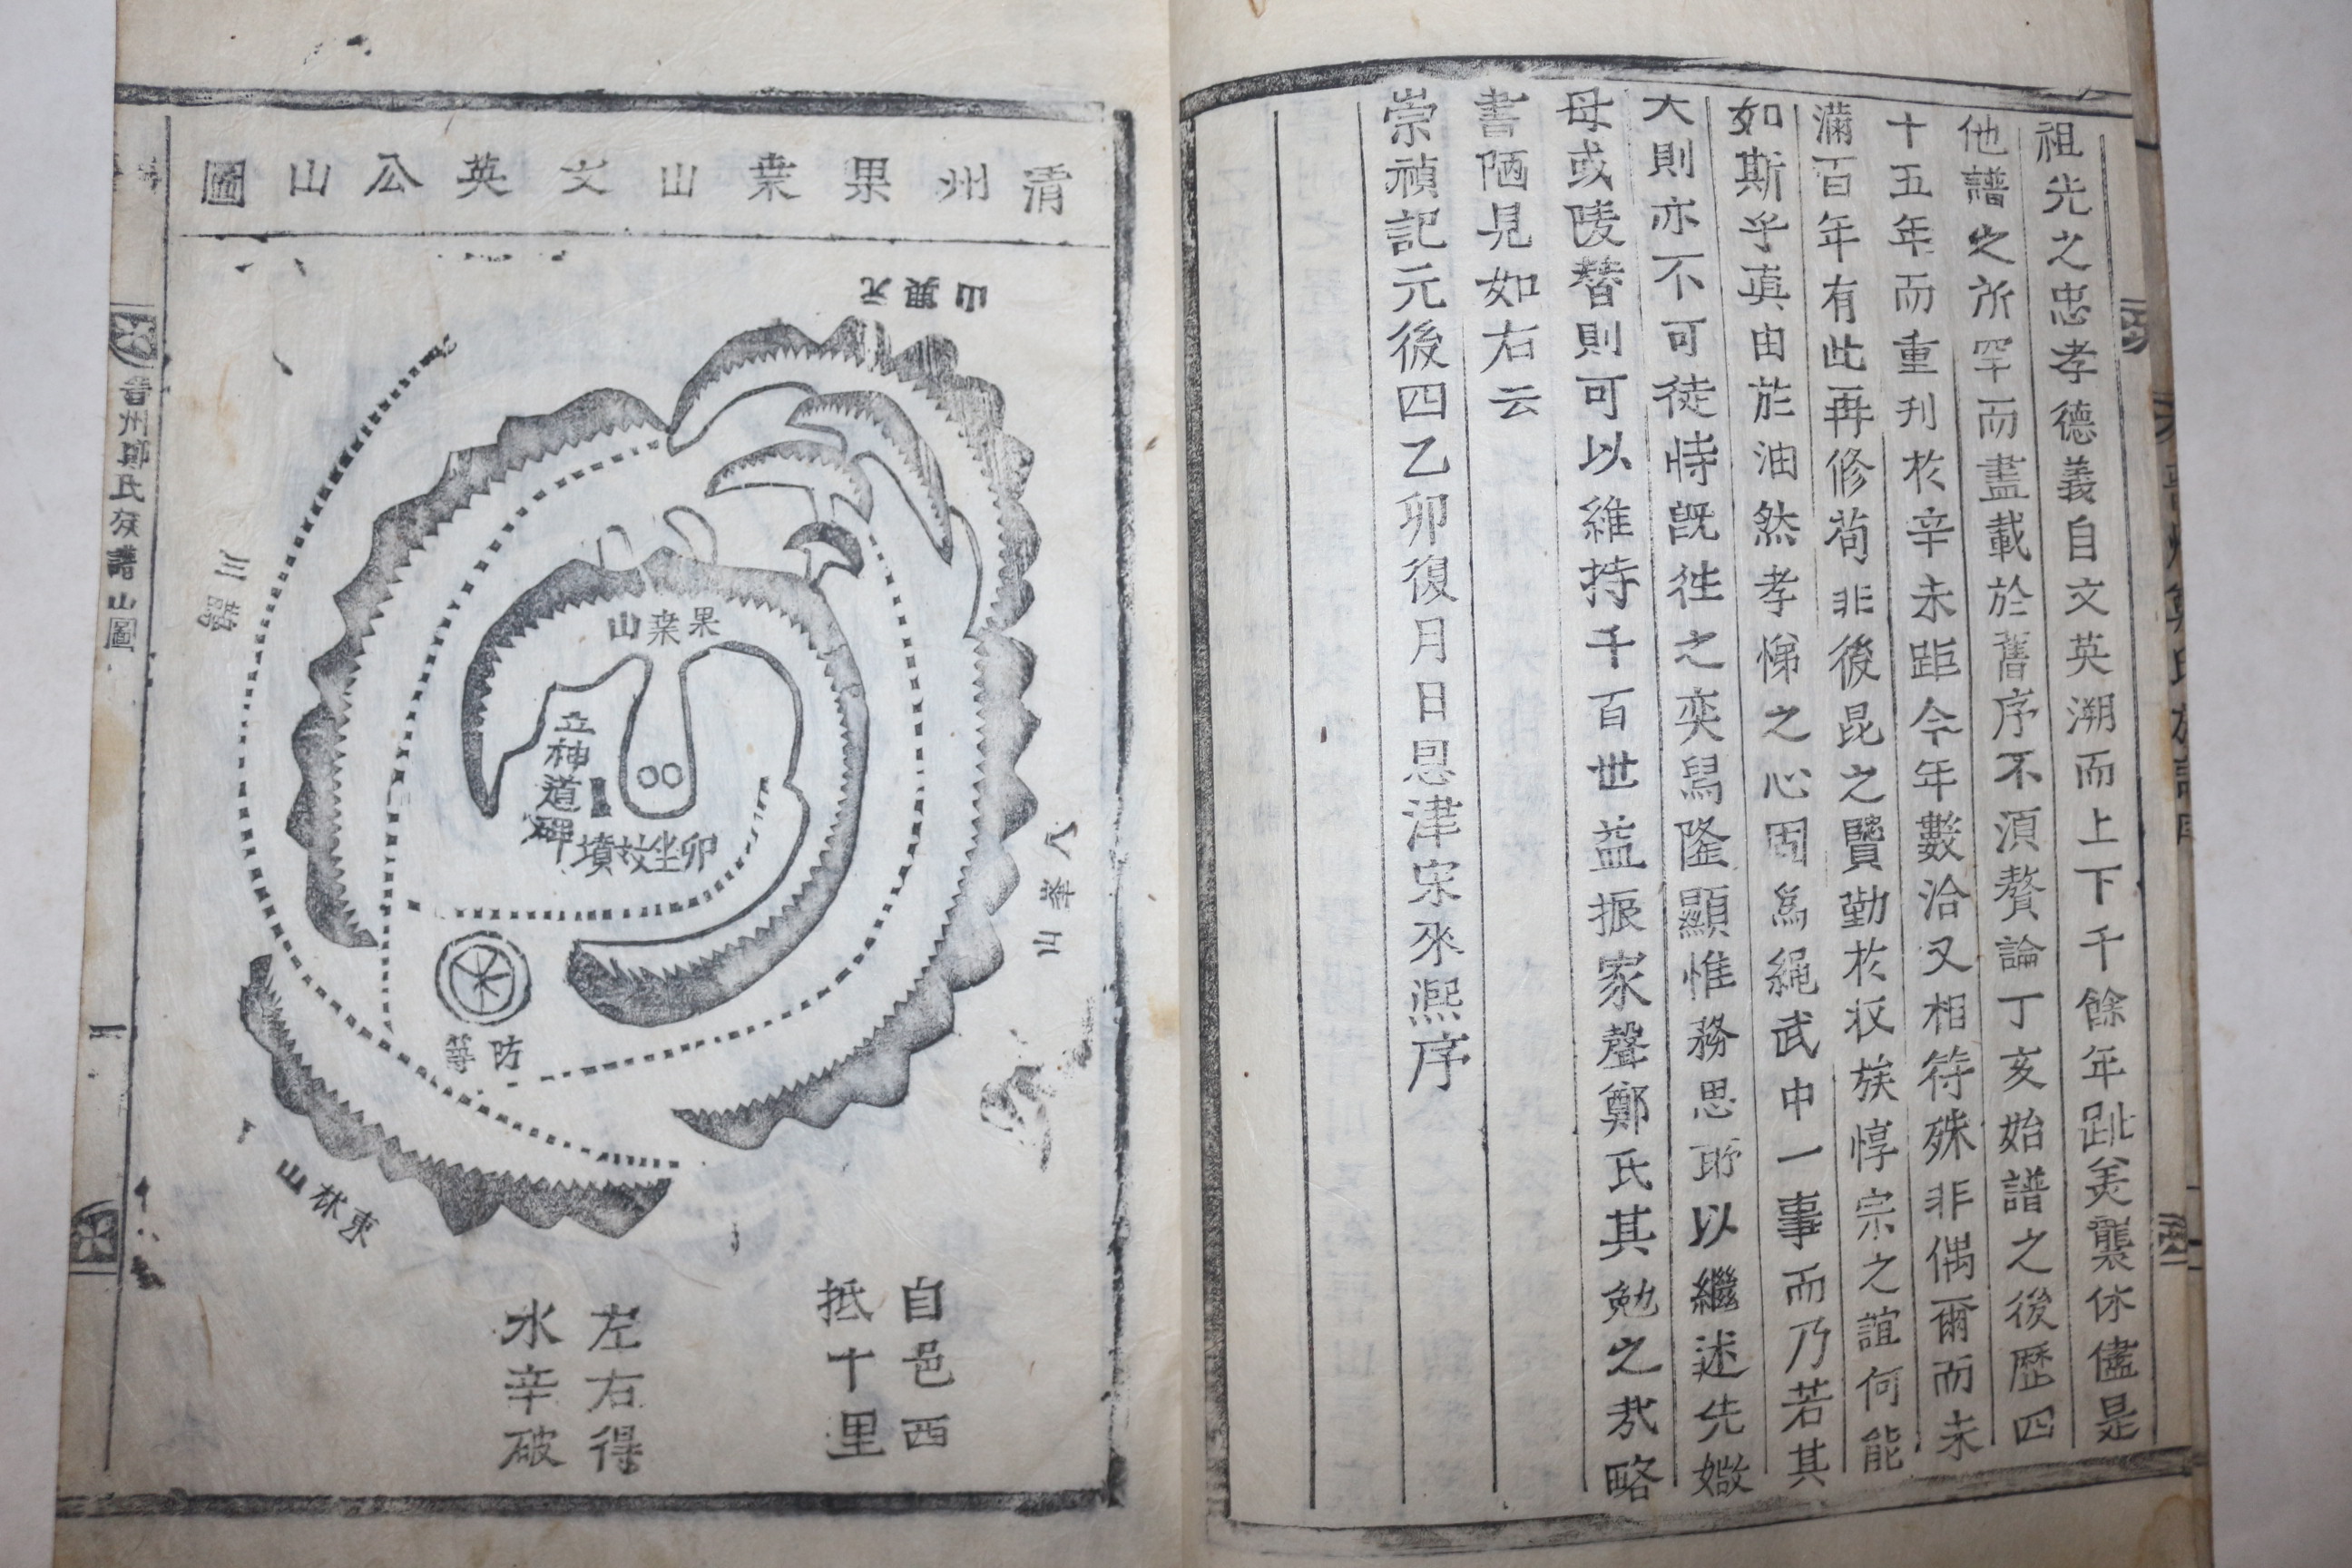 祖先之忠孝德義自文英溯而上下千餘年趾美襲休儘是
他譜之所罕而盡載於舊序不須贅論丁亥始譜之後歷四
十五年而重刊於辛未距今年數洽又相符殊非偶爾而未
滿百年有此再修苟非後昆之賢勤於收族惇宗之誼何能
如斯乎眞由於油然孝悌之心固爲繩武中一事而乃若其
大則亦不可徒恃旣往之奕舃隆顯惟務思所以繼述先媺
母或陵替則可以維持千百世益振家聲鄭氏其勉之哉略
書陋見如右云
崇禎記元後四乙卯復月日恩津宋來熙序
清州果桒山文英公山圖
元興山
果桒山
立神道碑
卯坐双墳
八峯山
防築
東林山
自邑西
抵十里
左右得
水辛破
晋州鄭氏族譜 山圖 一